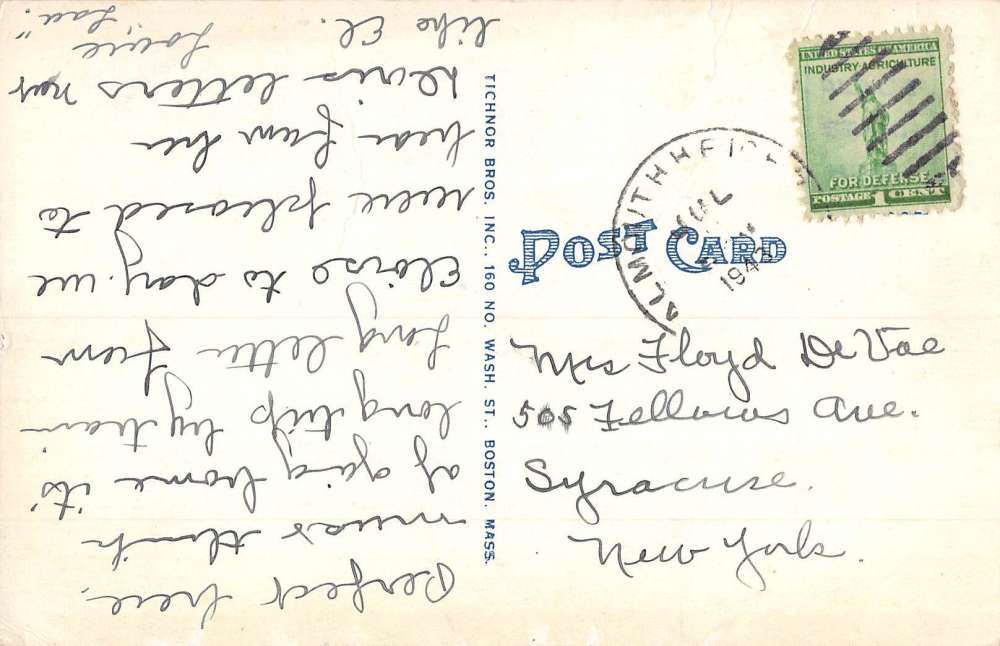 UNITED STATES OF AMERICA
INDUSTRY AGRICULTURE
FOR DEFENSE
POSTAGE 1 CENT
JUL
POST CARD
Mrs Floyd DeVoe
505 Fellows Ave.
Syracuse.
New York.
TICHNOR BROS. INC., 160 NO. WASH. ST., BOSTON, MASS.
Perfect here.
must think
of going home it's
long trip by train
Long letter from
Eloise to day. we
were pleased to
hear from her
letters not
like El.
Love